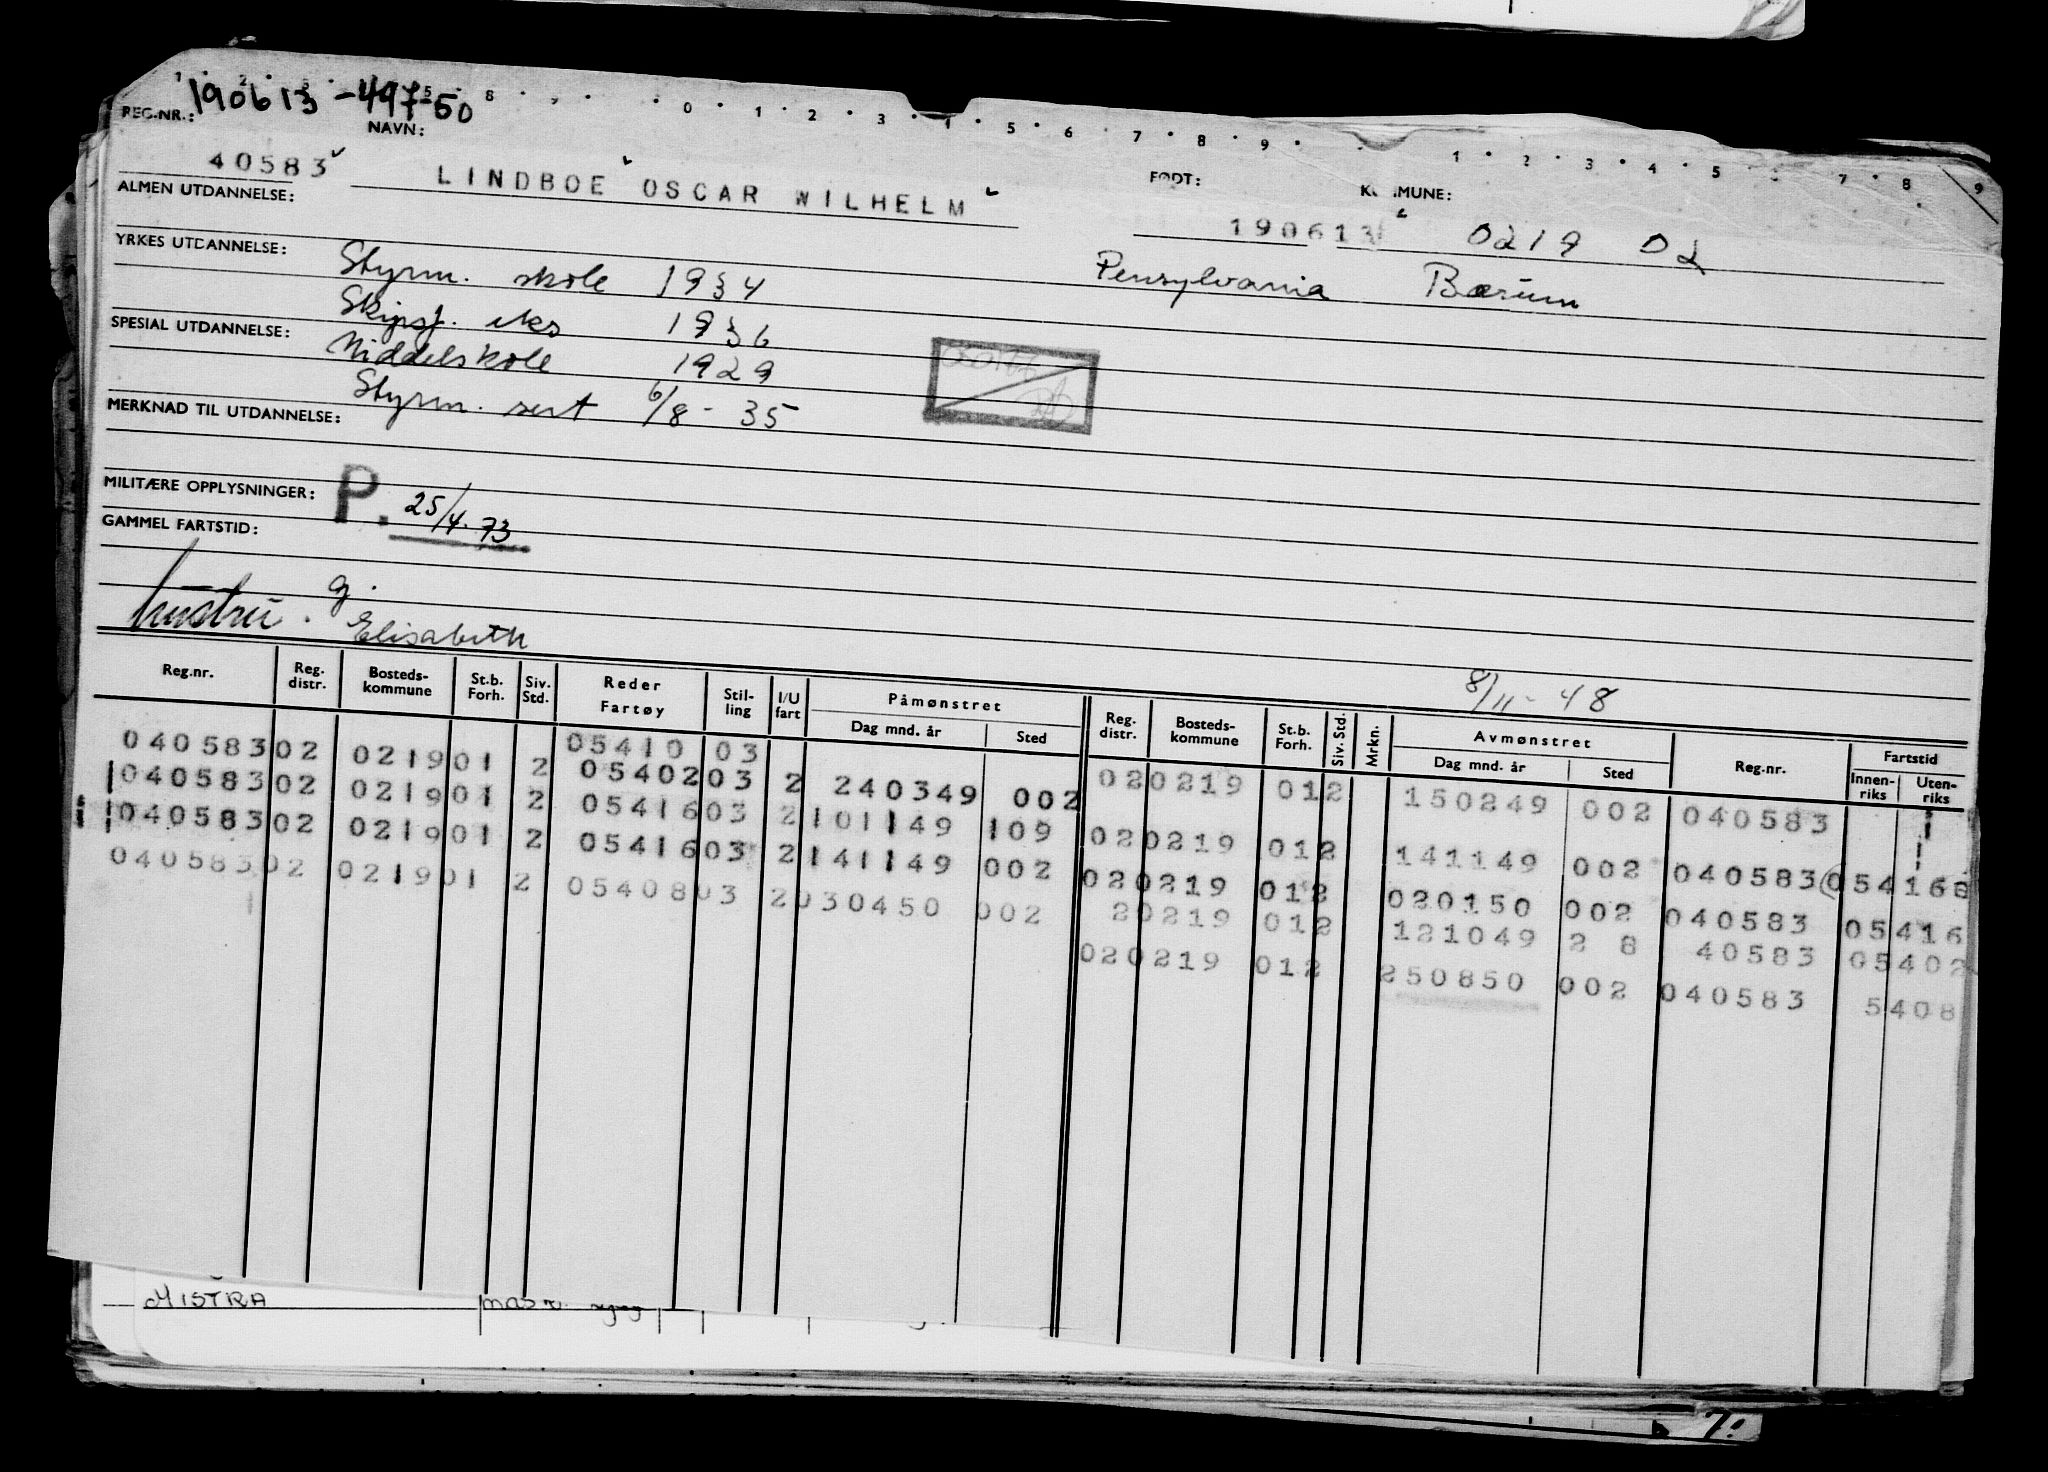 190613 - 49750
REG.NR.: NAVN: FØDT: KOMMUNE:
40583 LINDBOE OSCAR WILHELM 190613 0219 02
ALMEN UTDANNELSE:
Pensylvania Bærum
YRKES UTDANNELSE: Styrm. skole 1934
Skipsf. eks 1936
SPESIAL UTDANNELSE: Middelskole 1929
Styrm. sert 6/8 - 35
MERKNAD TIL UTDANNELSE:
MILITÆRE OPPLYSNINGER: P. 25/4. 73
GAMMEL FARTSTID:
hustru. G.
Elisabeth
8/11 - 48
Reg.nr. Reg. distr. Bosteds-kommune St.b. Forh. Siv. Std. Reder Fartøy Stil-ling I/U fart Påmønstret Dag mnd. år Sted Reg. distr. Bosteds-kommune St.b. Forh. Siv. Std. Mrkn. Avmønstret Dag mnd. år Sted Reg.nr. Fartstid Innen-riks Uten-riks
040583 02 0219 01 2 05410 03 020219 012 150249 002 040583
040583 02 0219 01 2 05402 03 2 240349 002
040583 02 0219 01 2 05416 03 2 101149 109 020219 012 141149 002 040583 054168
040583 02 0219 01 2 05416 03 2 141149 002 020219 012 020150 002 040583 05416
20219 012 121049 2 8 40583 05402
040583 02 0219 01 2 05408 03 2 030450 002 020219 012 250850 002 040583 5408
MISTRA
7.